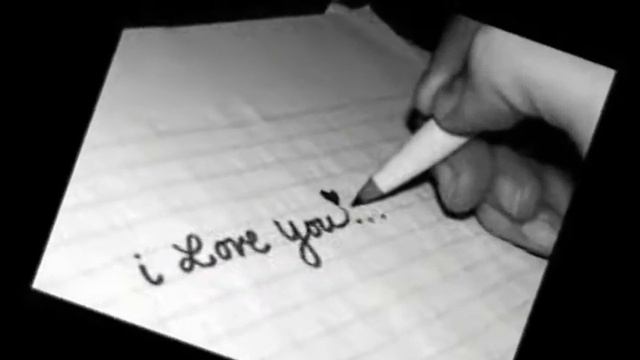 i Love you...